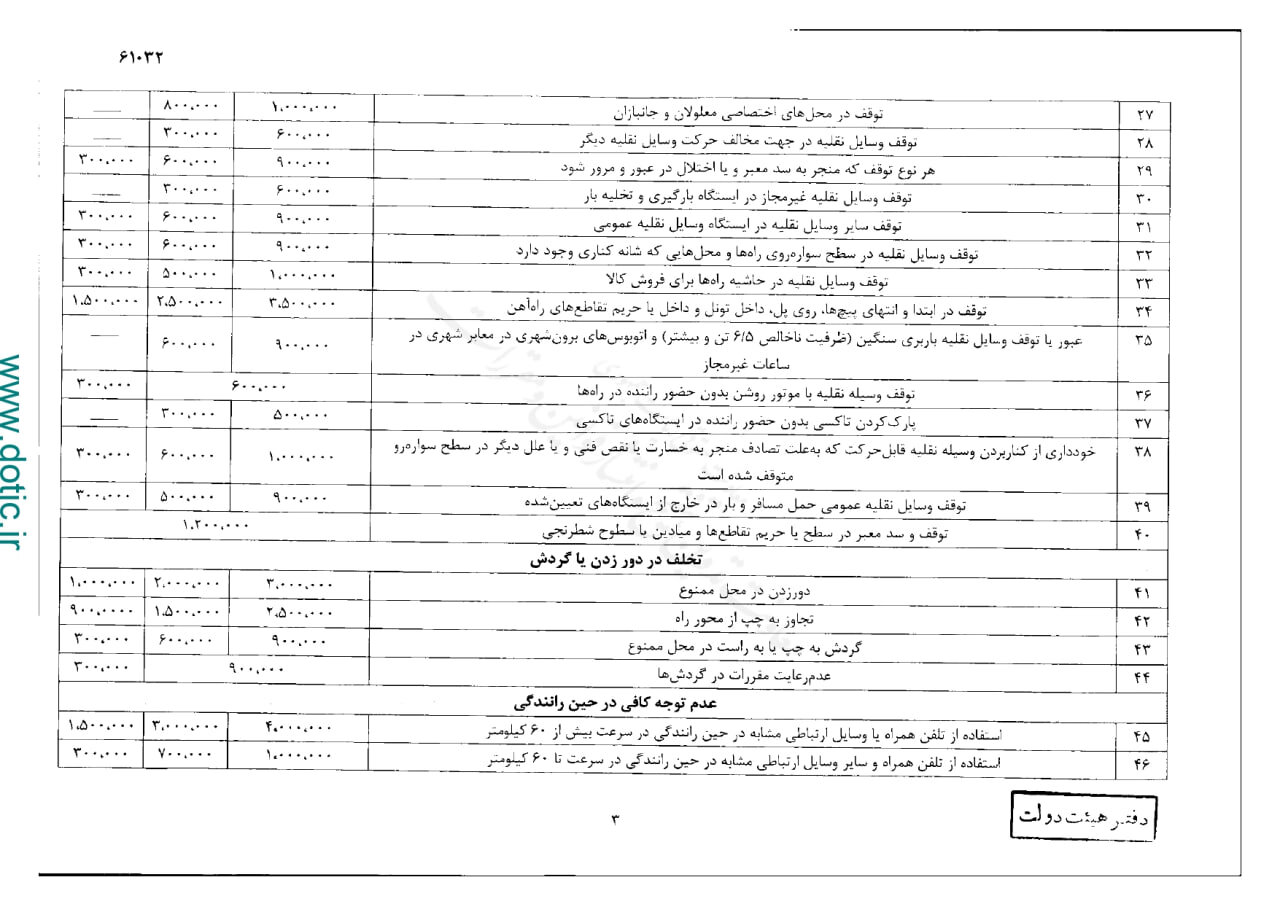 ۶۱۰۳۲
۲۷ توقف در محل‌های اختصاصی معلولان و جانبازان ۱،۰۰۰،۰۰۰ ۸۰۰،۰۰۰ ——
۲۸ توقف وسایل نقلیه در جهت مخالف حرکت وسایل نقلیه دیگر ۶۰۰،۰۰۰ ۳۰۰،۰۰۰ ——
۲۹ هر نوع توقف که منجر به سد معبر و یا اختلال در عبور و مرور شود ۹۰۰،۰۰۰ ۶۰۰،۰۰۰ ۳۰۰،۰۰۰
۳۰ توقف وسایل نقلیه غیرمجاز در ایستگاه بارگیری و تخلیه بار ۶۰۰،۰۰۰ ۳۰۰،۰۰۰ ——
۳۱ توقف سایر وسایل نقلیه در ایستگاه وسایل نقلیه عمومی ۹۰۰،۰۰۰ ۶۰۰،۰۰۰ ۳۰۰،۰۰۰
۳۲ توقف وسایل نقلیه در سطح سواره‌روی راه‌ها و محل‌هایی که شانه کناری وجود دارد ۹۰۰،۰۰۰ ۶۰۰،۰۰۰ ۳۰۰،۰۰۰
۳۳ توقف وسایل نقلیه در حاشیه راه‌ها برای فروش کالا ۱،۰۰۰،۰۰۰ ۵۰۰،۰۰۰ ۳۰۰،۰۰۰
۳۴ توقف در ابتدا و انتهای پیچ‌ها، روی پل، داخل تونل و داخل یا حریم تقاطع‌های راه‌آهن ۳،۵۰۰،۰۰۰ ۲،۵۰۰،۰۰۰ ۱،۵۰۰،۰۰۰
۳۵ عبور یا توقف وسایل نقلیه باربری سنگین (ظرفیت ناخالص ۶/۵ تن و بیشتر) و اتوبوس‌های برون‌شهری در معابر شهری در
ساعات غیرمجاز ۹۰۰،۰۰۰ ۶۰۰،۰۰۰ ——
۳۶ توقف وسیله نقلیه با موتور روشن بدون حضور راننده در راه‌ها ۶۰۰،۰۰۰ ۳۰۰،۰۰۰
۳۷ پارک‌کردن تاکسی بدون حضور راننده در ایستگاه‌های تاکسی ۵۰۰،۰۰۰ ۳۰۰،۰۰۰ ——
۳۸ خودداری از کناربردن وسیله نقلیه قابل‌حرکت که به‌علت تصادف منجر به خسارت یا نقص فنی و یا علل دیگر در سطح سواره‌رو
متوقف شده است ۱،۰۰۰،۰۰۰ ۶۰۰،۰۰۰ ۳۰۰،۰۰۰
۳۹ توقف وسایل نقلیه عمومی حمل مسافر و بار در خارج از ایستگاه‌های تعیین‌شده ۹۰۰،۰۰۰ ۵۰۰،۰۰۰ ۳۰۰،۰۰۰
۴۰ توقف و سد معبر در سطح یا حریم تقاطع‌ها و میادین یا سطوح شطرنجی ۱،۲۰۰،۰۰۰
تخلف در دور زدن یا گردش
۴۱ دورزدن در محل ممنوع ۳،۰۰۰،۰۰۰ ۲،۰۰۰،۰۰۰ ۱،۰۰۰،۰۰۰
۴۲ تجاوز به چپ از محور راه ۲،۵۰۰،۰۰۰ ۱،۵۰۰،۰۰۰ ۹۰۰،۰۰۰۰
۴۳ گردش به چپ یا به راست در محل ممنوع ۹۰۰،۰۰۰ ۶۰۰،۰۰۰ ۳۰۰،۰۰۰
۴۴ عدم‌رعایت مقررات در گردش‌ها ۹۰۰،۰۰۰ ۳۰۰،۰۰۰
عدم توجه کافی در حین رانندگی
۴۵ استفاده از تلفن همراه یا وسایل ارتباطی مشابه در حین رانندگی در سرعت بیش از ۶۰ کیلومتر ۴،۰۰۰،۰۰۰ ۳،۰۰۰،۰۰۰ ۱،۵۰۰،۰۰۰
۴۶ استفاده از تلفن همراه و سایر وسایل ارتباطی مشابه در حین رانندگی در سرعت تا ۶۰ کیلومتر ۱،۰۰۰،۰۰۰ ۷۰۰،۰۰۰ ۳۰۰،۰۰۰
دفتر هیئت دولت
۳
www.dotic.ir